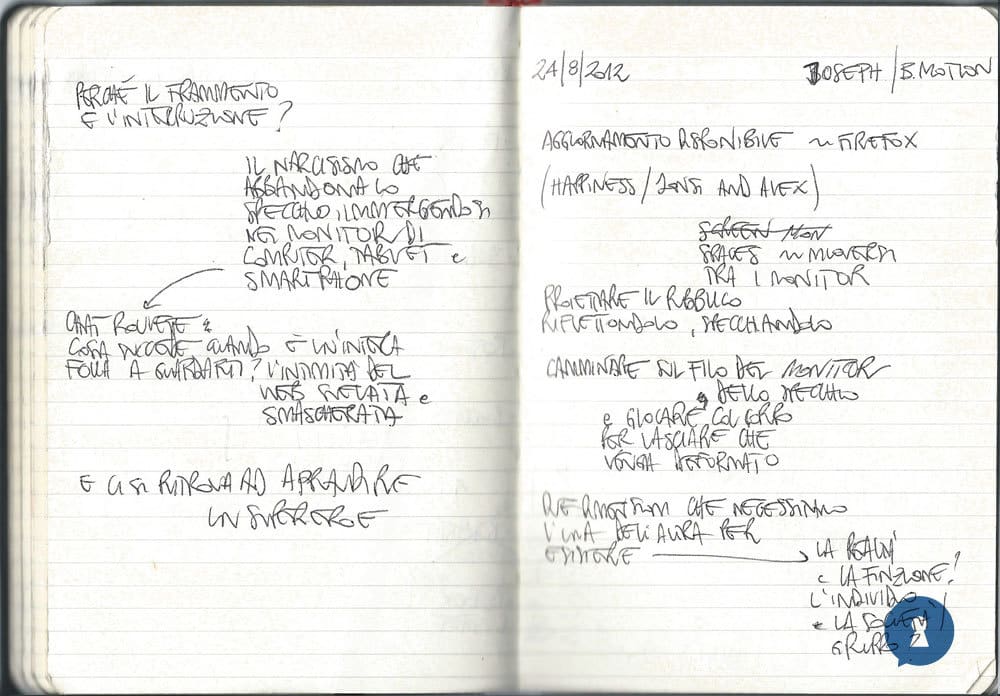 PERCHÉ IL FRAMMENTO
E L'INTERRUZIONE?
IL NARCISISMO CHE
ABBANDONA LO
SPECCHIO, IMMERGENDOSI
NEI MONITOR DI
COMPUTER, TABLET e
SMARTPHONE
CHAT ROULETTE
COSA SUCCEDE QUANDO È UN'INTERA
FOLLA A GUARDARTI? L'INTIMITÀ DEL
WEB SVELATA e
SMASCHERATA
E CI SI RITROVA AD APPLAUDIRE
UN SUPEREROE
24/8/2012
JOSEPH / B.MOTION
AGGIORNAMENTO DISPONIBILE ~ FIREFOX
(HAPPINESS / JONSI AND ALEX)
SCREEN MON
SPACES ~ MUOVERSI
TRA I MONITOR
PROIETTARE IL PUBBLICO
RIFLETTENDOLO, SPECCHIANDOLO
CAMMINARE SUL FILO DEL MONITOR
DELLO SPECCHIO
e GIOCARE COL CORPO
PER LASCIARE CHE
VENGA DEFORMATO
DUE DIMENSIONI CHE NECESSITANO
L'UNA DELL'ALTRA PER
ESISTERE
LA REALTÀ
e LA FINZIONE?
L'INDIVIDUO
e LA SOCIETÀ /
GRUPPO?